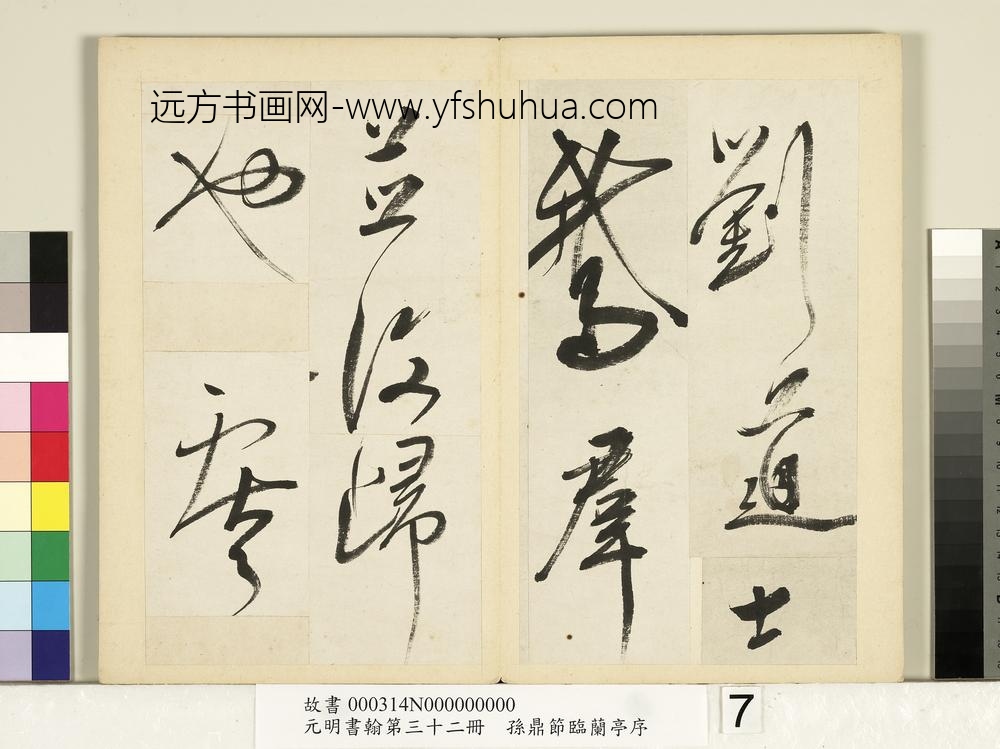 远方书画网-www.yfshuhua.com
劉道士
鵝羣
並復歸
也
故書 000314N000000000
元明書翰第三十二冊　孫鼎節臨蘭亭序
7